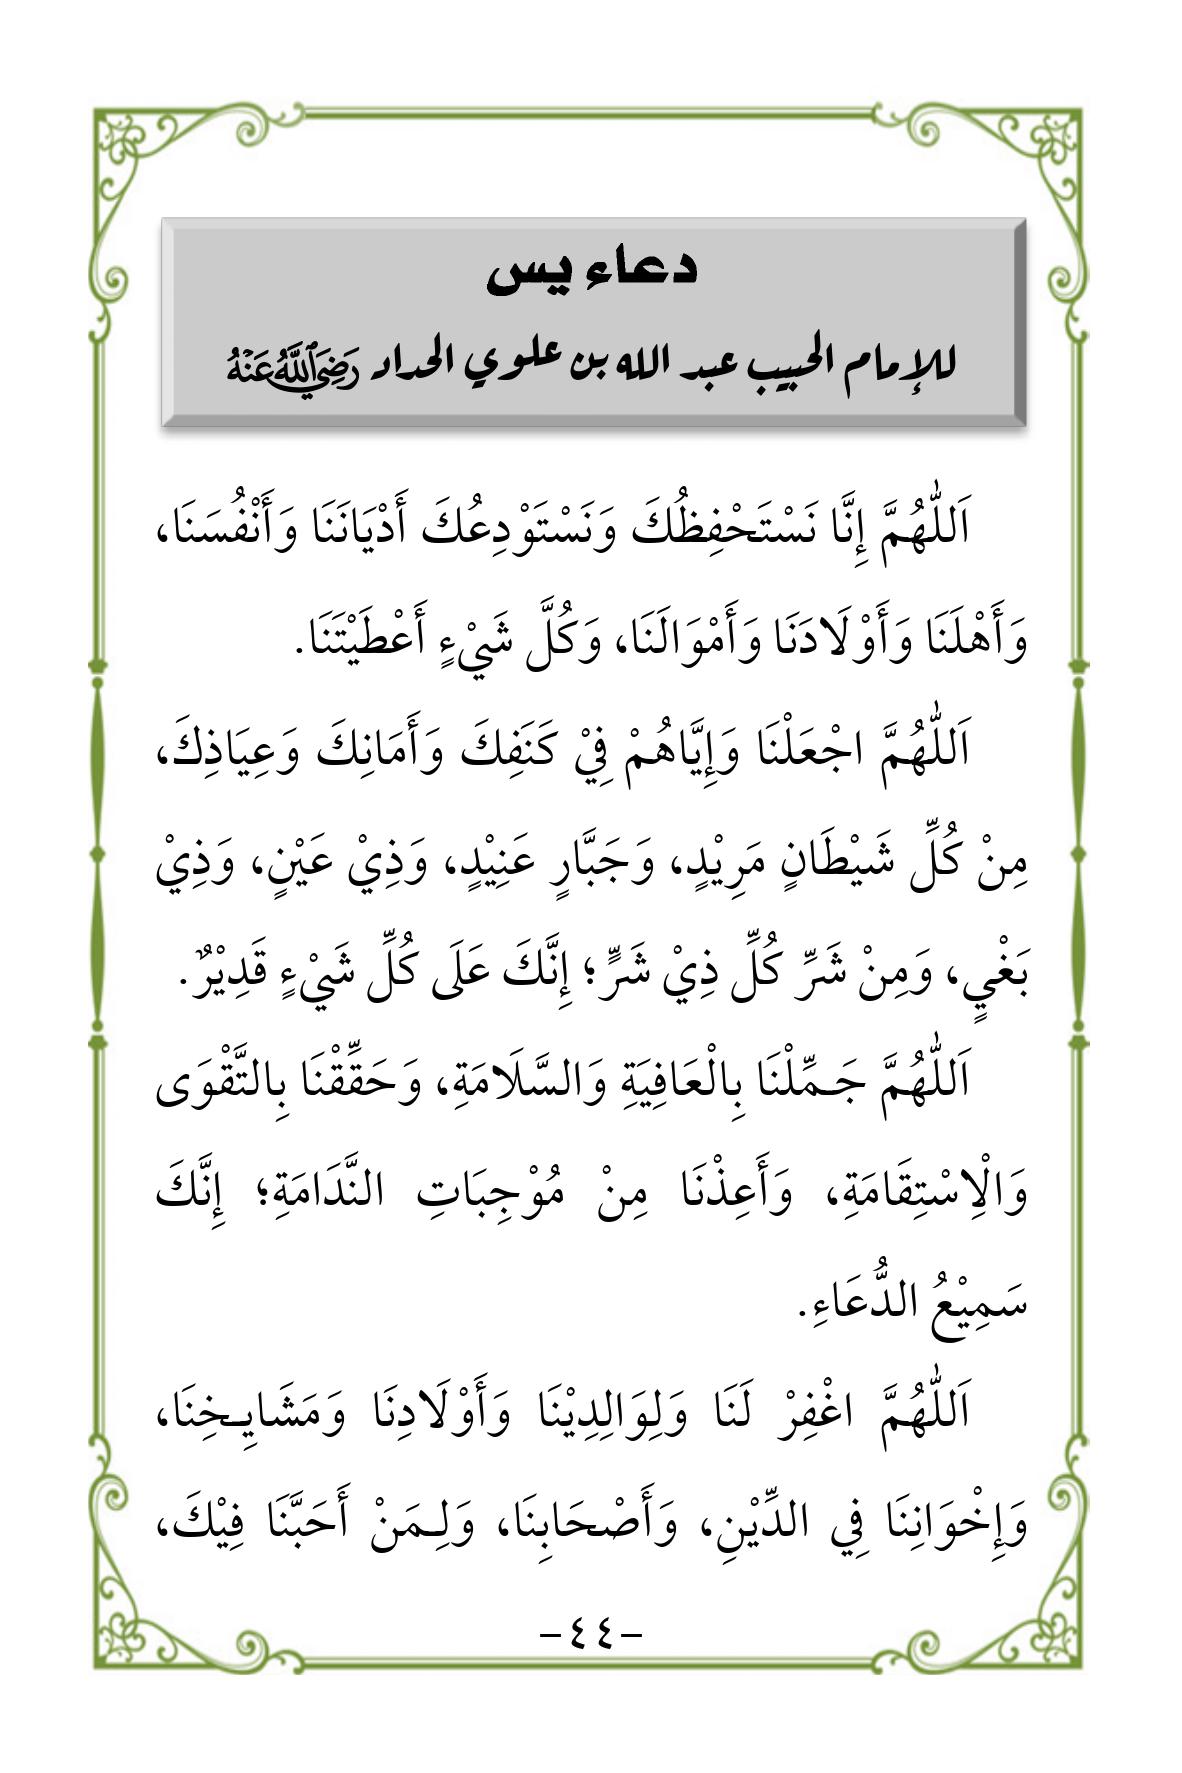 دعاء يس
للإمام الحبيب عبد الله بن علوي الحداد رَضِيَ اللَّهُ عَنْهُ
اَللّٰهُمَّ إِنَّا نَسْتَحْفِظُكَ وَنَسْتَوْدِعُكَ أَدْيَانَنَا وَأَنْفُسَنَا،
وَأَهْلَنَا وَأَوْلَادَنَا وَأَمْوَالَنَا، وَكُلَّ شَيْءٍ أَعْطَيْتَنَا.
اَللّٰهُمَّ اجْعَلْنَا وَإِيَّاهُمْ فِيْ كَنَفِكَ وَأَمَانِكَ وَعِيَاذِكَ،
مِنْ كُلِّ شَيْطَانٍ مَرِيْدٍ، وَجَبَّارٍ عَنِيْدٍ، وَذِيْ عَيْنٍ، وَذِيْ
بَغْيٍ، وَمِنْ شَرِّ كُلِّ ذِيْ شَرٍّ؛ إِنَّكَ عَلَى كُلِّ شَيْءٍ قَدِيْرٌ.
اَللّٰهُمَّ جَـمِّلْنَا بِالْعَافِيَةِ وَالسَّلَامَةِ، وَحَقِّقْنَا بِالتَّقْوَى
وَالْاِسْتِقَامَةِ، وَأَعِذْنَا مِنْ مُوْجِبَاتِ النَّدَامَةِ؛ إِنَّكَ
سَمِيْعُ الدُّعَاءِ.
اَللّٰهُمَّ اغْفِرْ لَنَا وَلِوَالِدِيْنَا وَأَوْلَادِنَا وَمَشَايِـخِنَا،
وَإِخْوَانِنَا فِي الدِّيْنِ، وَأَصْحَابِنَا، وَلِـمَنْ أَحَبَّنَا فِيْكَ،
-٤٤-